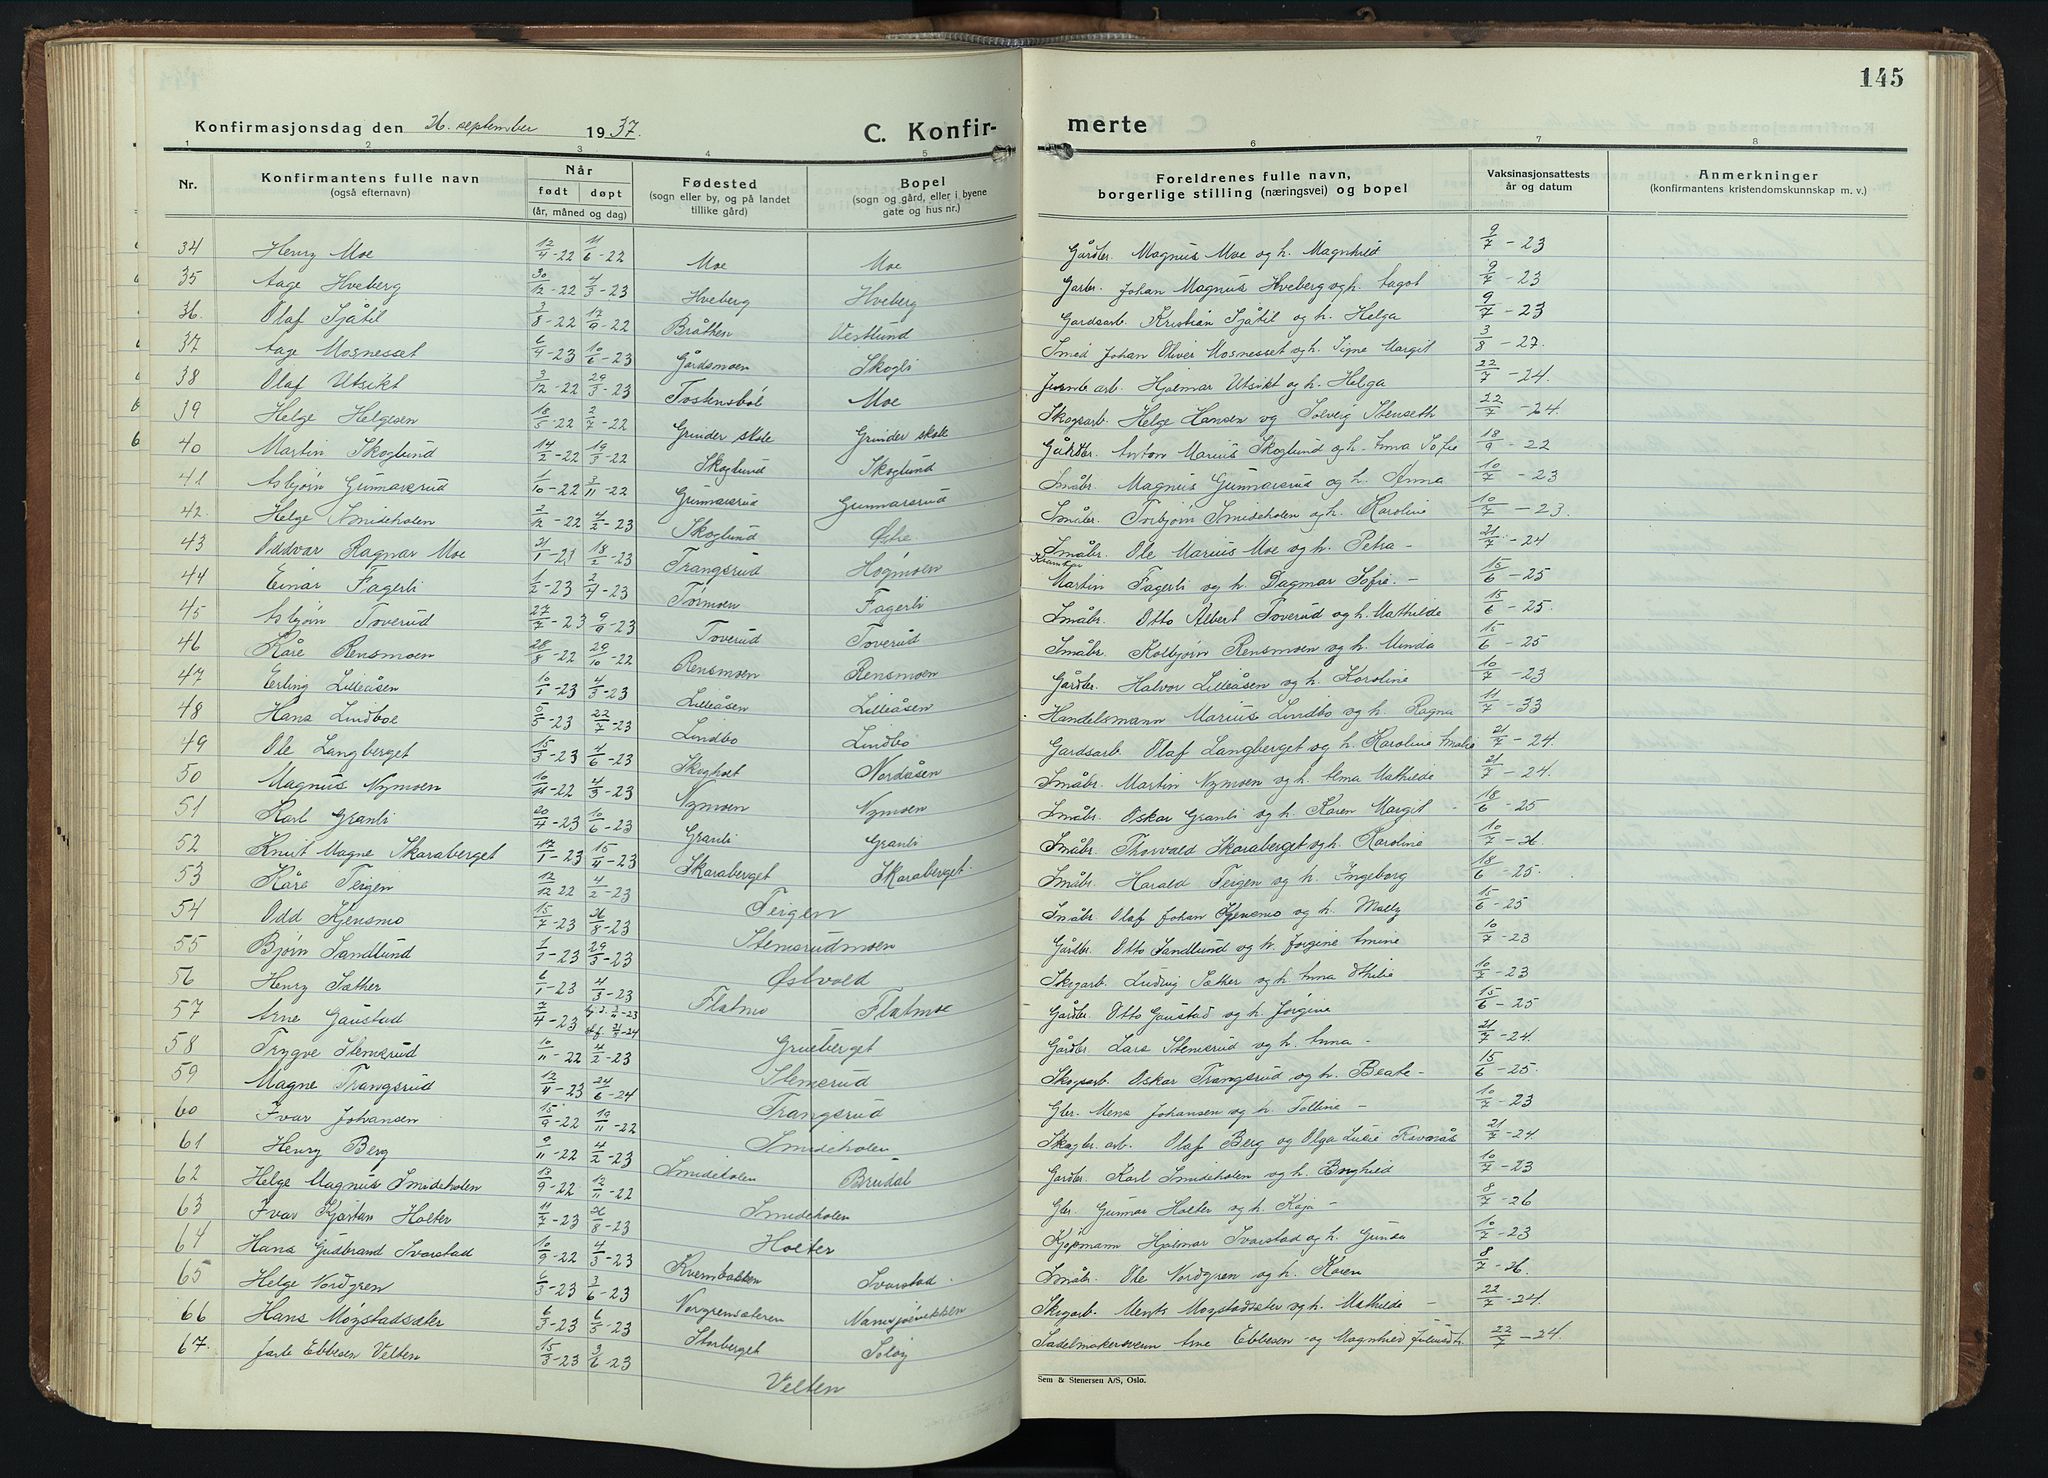 145
Konfirmasjonsdag den 26. september 1937. C. Konfir- merte
1 2 3 4 5 6 7 8
Nr. Konfirmantens fulle navn (også efternavn) Når født døpt (år, måned og dag) Fødested (sogn eller by, og på landet tillike gård) Bopel (sogn og gård, eller i byene gate og hus nr.) Foreldrenes fulle navn, borgerlige stilling (næringsvei) og bopel Vaksinasjonsattests år og datum Anmerkninger (konfirmantens kristendomskunnskap m. v.)
34 Henry Moe 12/4-22 11/6-22 Moe Moe Gårdbr. Magnus Moe og h. Magnhild 9/7-23
35 Aage Hveberg 30/12-22 4/3-23 Hveberg Hveberg Garbr. Johan Magnus Hveberg og h. Aagot 9/7-23
36. Olaf Sjåtil 3/8-22 17/9-22 Bråtten Vestlund Gardsarb. Kristian Sjåtil og h. Helga 9/7-23
37 Aage Mosnesset 6/4-23 10/6-23 Gårdsmoen Skogli Smed Johan Oliver Mosnesset og h. Signe Margit 3/8-27.
38 Olaf Utsikt 3/12-22 29/3-23 Tostensbøl Moe arb. Hjalmar Utsikt og h. Helga 22/7-24.
39 Helge Helgesen 18/5-22 2/7-22 Grinder skole Grinder skole Skogsarb. Helge Hansen og Solveig Stenseth 22/7-24.
40 Martin Skoglund 14/2-22 19/3-22 Skoglund Skoglund Gårdbr. Anton Marius Skoglund og h. Anna Sofie 18/9-22
41 Asbjørn Gunnarsrud 1/10-22 3/11-22 Gunnarsrud Gunnarsrud Småbr. Magnus Gunnarsrud og h. Anna 10/7-23
42. Helge Smideholen 2/12-22 4/2-23 Skoglund Østre Småbr. Torbjørn Smideholen og h. Karoline 10/7-23.
43 Oddvar Ragnar Moe 21/1-21 18/2-23 Trangsrud Høgmoen Småbr. Ole Marius Moe og h. Petra - 21/7-24
44 Einar Fagerli 1/2-23 2/4-23 Tormoen Fagerli Martin Fagerli og h. Dagmar Sofie - 15/6-25
45 Asbjørn Toverud 27/7-23 9/9-23 Toverud Toverud Småbr. Otto Albert Toverud og h. Mathilde 15/6-25.
46 Kåre Rensmoen 28/8-22 29/10-22 Rensmoen Rensmoen Småbr. Kolbjørn Rensmoen og h. Minda 15/6-25
47 Erling Lilleåsen 10/1-23 4/3-23 Lilleåsen Lilleåsen Gårdbr. Halvor Lilleåsen og h. Karoline 10/7-23
48 Hans Lindboe 5/5-23 22/7-23 Lindbo Lindbo Handelsmann Marius Lindbo og h. Ragna 11/7-33
49 Ole Langberget 15/3-23 4/6-23 Skogholt Nordåsen Gardsarb. Olaf Langberget og h. Karoline Amalie 21/7-24.
50 Magnus Nymoen 10/11-22 4/3-23 Nymoen Nymoen Småbr. Martin Nymoen og h. Anna Mathilde 21/7-24.
51 Karl Granli 20/4-23 10/6-23 Granli Granli Småbr. Oskar Granli og h. Karen Margit - 18/6-25
52 Knut Magne Skaraberget 17/1-23 15/4-23 Skaraberget Skaraberget. Småbr. Thorvald Skaraberget og h. Karoline 10/7-26
53 Kåre Teigen 12/12 22 4/2-23 Teigen Småbr. Harald Teigen og h. Ingeborg 18/6-25.
54 Odd Kjensmo 15/7-23 26/8-23 Stemsrudmoen Småbr. Olaf Johan Kjensmo og h. Malty 15/6-25
55 Bjørn Sandlund 1/1-23 29/3-23 Østvold Gårdbr. Otto Sandlund og h. Jørgine Amine 10/7-23
56 Henry Sæther 6/1-23 4/3-23 Flatmo Flatmoe Skogarb. Ludvig Sæther og h. Anna Othilie 10/7-23
57 Arne Gaustad 2/4-23 Grueberget Gårdbr. Otto Gaustad og h. Jørgine 15/6-25
58 Trygve Stemsrud 10/11-22 4/2-23 Stemsrud Gårdbr. Lars Stemsrud og h. Anna - 21/7-24.
59 Magne Trangsrud 12/11-23 24/6-24 Trangsrud Skogsarb. Oskar Trangsrud og h. Beate - 15/6-25.
60 Ivar Johansen 15/9-22 19/11-22 Smideholen Gbr. Mens Johansen og h. Tolline - 10/7-23
61 Henry Berg 9/11-22 4/2-23 Smideholen Brudal Skogbr. arb. Olaf Berg og Olga Lucie 21/7-24.
62 Helge Magnus Smideholen 13/9-22 12/11-22 Smideholen Gardbr. Karl Smideholen og h. Borghild 10/7-23
63 Ivar Kjartan Holter 11/7-23 26/8-23 Holter Gbr. Gunnar Holter og h. Kaja - 8/7-26
64 Hans Gudbrand Svarstad 10/9-22 4/3-23 Kvernbakken Svarstad. Kjøpmann Hjalmar Svarstad og h. Gunda 10/7-23
65 Helge Nordgren 6/3-23 3/6-23 Norgrensæteren Småbr. Ole Nordgren og h. Karen 8/7-26.
66 Hans Møystadsæter 6/3-23 6/5-23 Storberget Soløy Skogarb. Menk Møystadsæter og h. Mathilde - 22/7-24.
67. Jarle Ebbesen Velten 15/3-23 3/6-23 Velten Sadelmakersvenn Arne Ebbesen og Magnhild 22/7-24.
Sem & Stenersen A/S, Oslo.